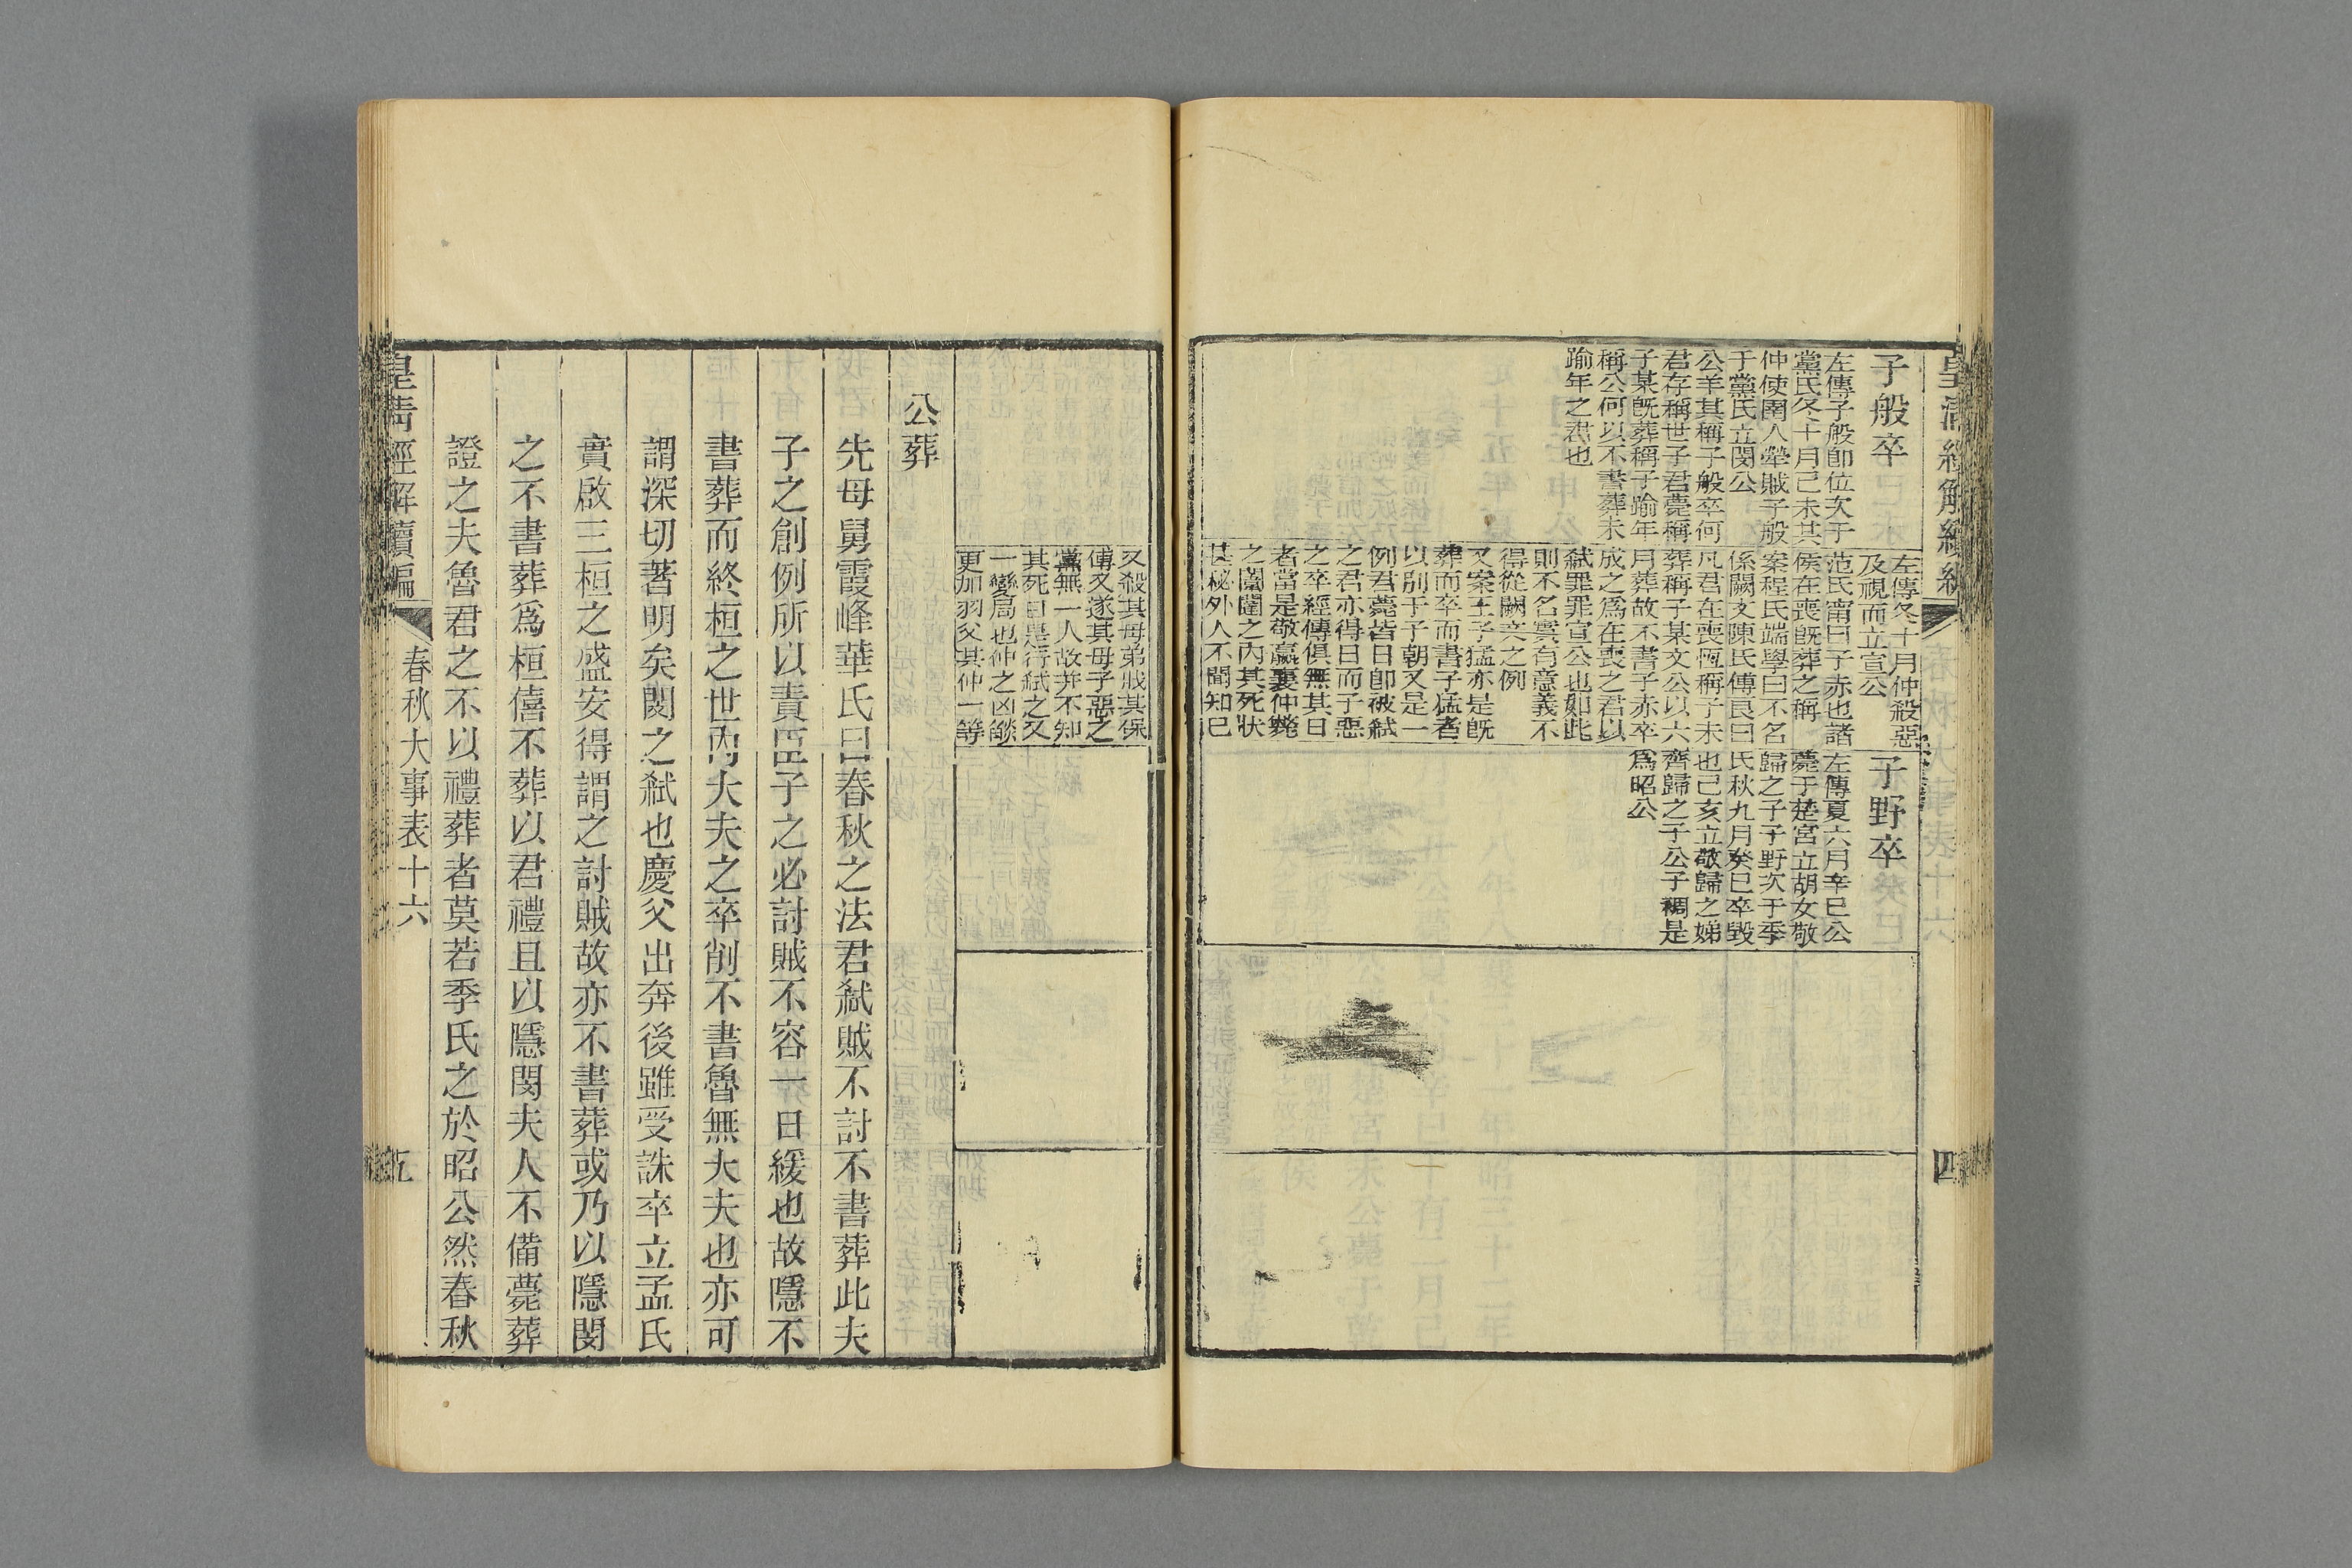 皇清經解續編
四
子般卒
左傳子般卽位次于
黨氏冬十月己未共
仲使圉人犖賊子般
于黨氏立閔公
公羊其稱子般卒何
君存稱世子君薨稱
子某旣葬稱子踰年
稱公何以不書葬未
踰年之君也
左傳冬十月仲殺惡
及視而立宣公
范氏甯曰子赤也諸
侯在喪旣葬之稱
案程氏端學曰不名
係闕文陳氏傅良曰
凡君在喪恆稱子未
葬稱子某文公以六
月葬故不書子赤卒
成之爲在喪之君以
弑罪罪宣公也如此
則不名實有意義不
得從闕文之例
又案王子猛亦是旣
葬而卒而書子猛者
以別于子朝又是一
例君薨皆日卽被弑
之君亦得日而子惡
之卒經傳俱無其日
者當是敬嬴襄仲斃
之闈闥之內其死狀
甚秘外人不聞知已
子野卒
左傳夏六月辛巳公
薨于楚宮立胡女敬
歸之子子野次于季
氏秋九月癸巳卒毀
也己亥立敬歸之娣
齊歸之子公子裯是
爲昭公
又殺其母弟戕其保
傅又遂其母子惡之
黨無一人故并不知
其死日是行弑之又
一變局也仲之凶燄
更加羽父其仲一等
公葬
先母舅霞峰華氏曰春秋之法君弑賊不討不書葬此夫
子之創例所以責臣子之必討賊不容一日緩也故隱不
書葬而終桓之世內大夫之卒削不書魯無大夫也亦可
謂深切著明矣閔之弑也慶父出奔後雖受誅卒立孟氏
實啟三桓之盛安得謂之討賊故亦不書葬或乃以隱閔
之不書葬爲桓僖不葬以君禮且以隱閔夫人不備薨葬
證之夫魯君之不以禮葬者莫若季氏之於昭公然春秋
皇清經解續編
春秋大事表十六
五